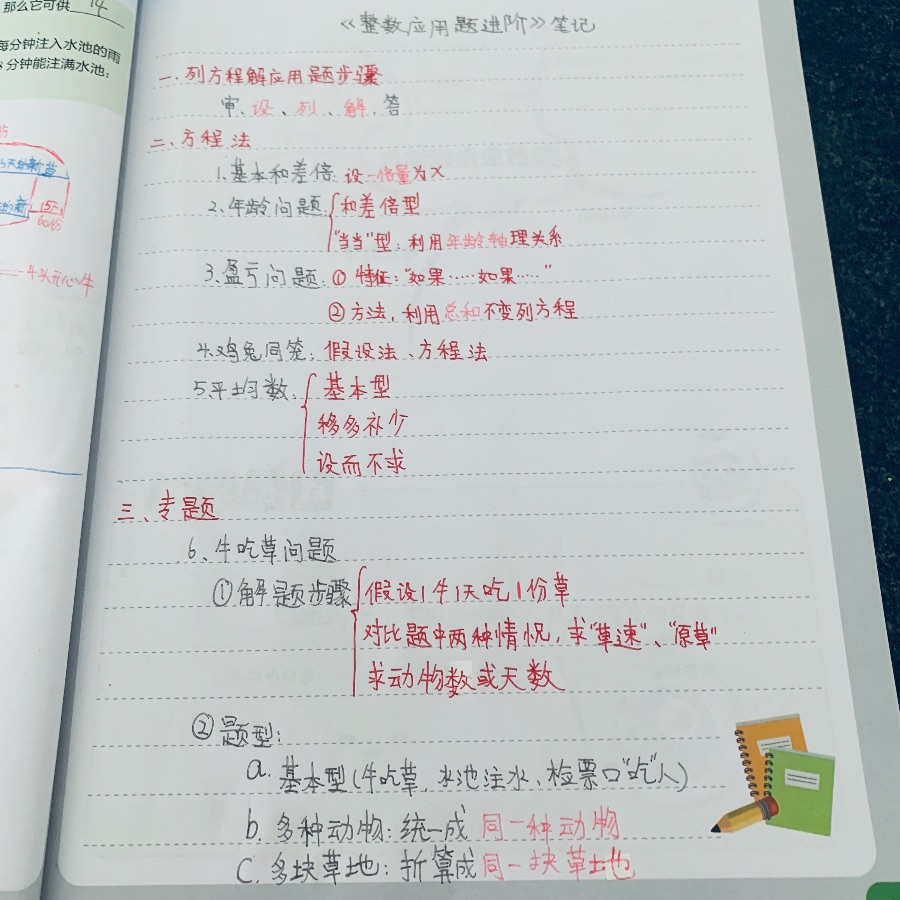 那么它可供 14
每分钟注入水池的雨
分钟能注满水池;
《整数应用题进阶》笔记
一、列方程解应用题步骤
审、设、列、解、答
二、方程法
1.基本和差倍 设一倍量为X
2、年龄问题 和差倍型
"当当"型:利用年龄轴理关系
3、盈亏问题 ① 特征:"如果……如果……"
② 方法,利用总和不变列方程
4.鸡兔同笼:假设法、方程法
5.平均数 基本型
移多补少
设而不求
三、专题
6、牛吃草问题
①解题步骤 假设1牛1天吃1份草
对比题中两种情况,求"草速"、"原草"
求动物数或天数
②题型:
a. 基本型(牛吃草,水池注水、检票口"吃"人)
b. 多种动物:统一成 同一种动物
C. 多块草地:折算成同一块草地